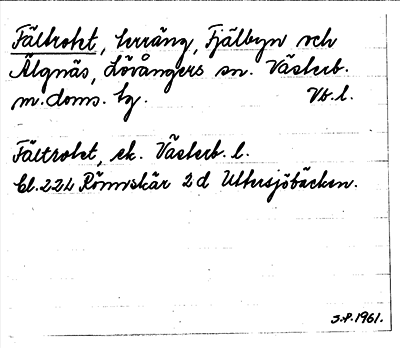 Fältrotet, terräng, Fjälbyn och
Älgnäs, Lövångers sn. Västerb.
m. doms. tg. Vb. l.
Fältrotet, ek. Västerb. l.
bl. 22L Römskär 2d Uttersjöbäcken.
J.P. 1961.